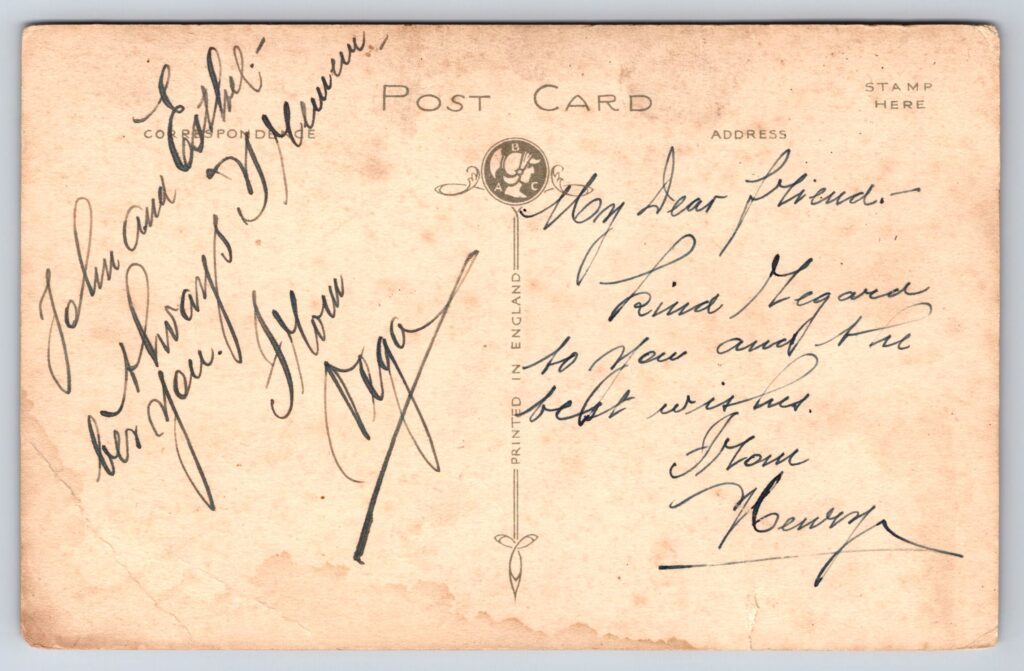 POST CARD
STAMP
HERE
CORRESPONDENCE
ADDRESS
A B C
PRINTED IN ENGLAND
John and Esthel.-
Always I Remem-
ber you.
From
My Dear friend.-
Kind Regard
to you and the
best wishes.
From
Henry